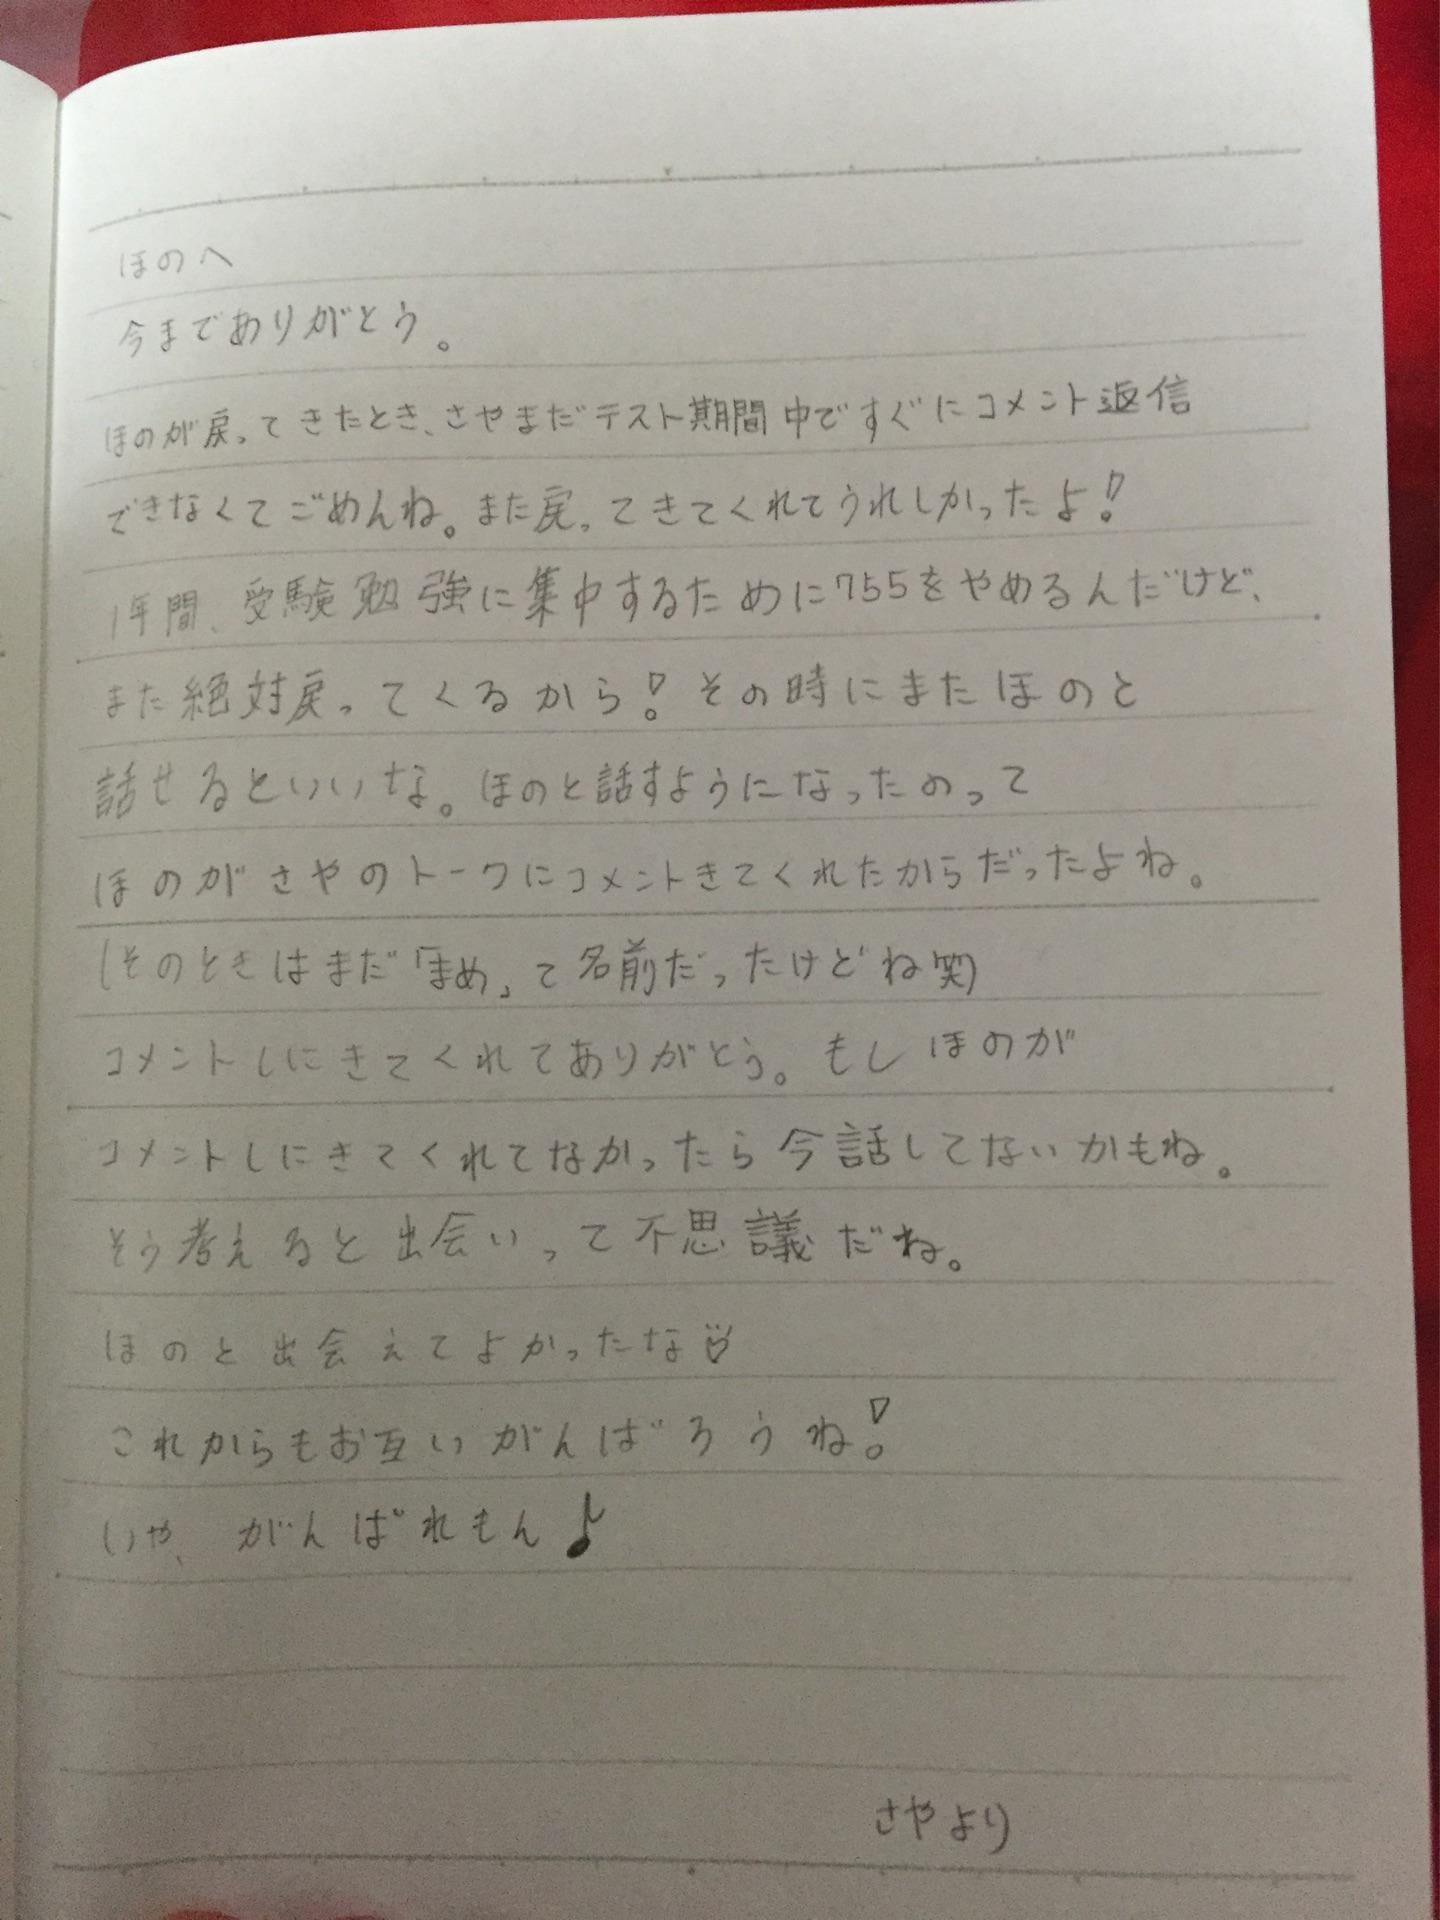 ほのへ
今までありがとう。
ほのが戻ってきたとき、さやまだテスト期間中ですぐにコメント返信
できなくてごめんね。また戻ってきてくれてうれしかったよ!
1年間、受験勉強に集中するために755をやめるんだけど、
また絶対戻ってくるから!その時にまたほのと
話せるといいな。ほのと話すようになったのって
ほのがさやのトークにコメントきてくれたからだったよね。
(そのときはまだ「まめ」って名前だったけどね笑)
コメントしにきてくれてありがとう。もしほのが
コメントしにきてくれてなかったら今話してないかもね。
そう考えると出会いって不思議だね。
ほのと出会えてよかったな♡
これからもお互いがんばろうね!
いや、がんばれもん♪
さやより